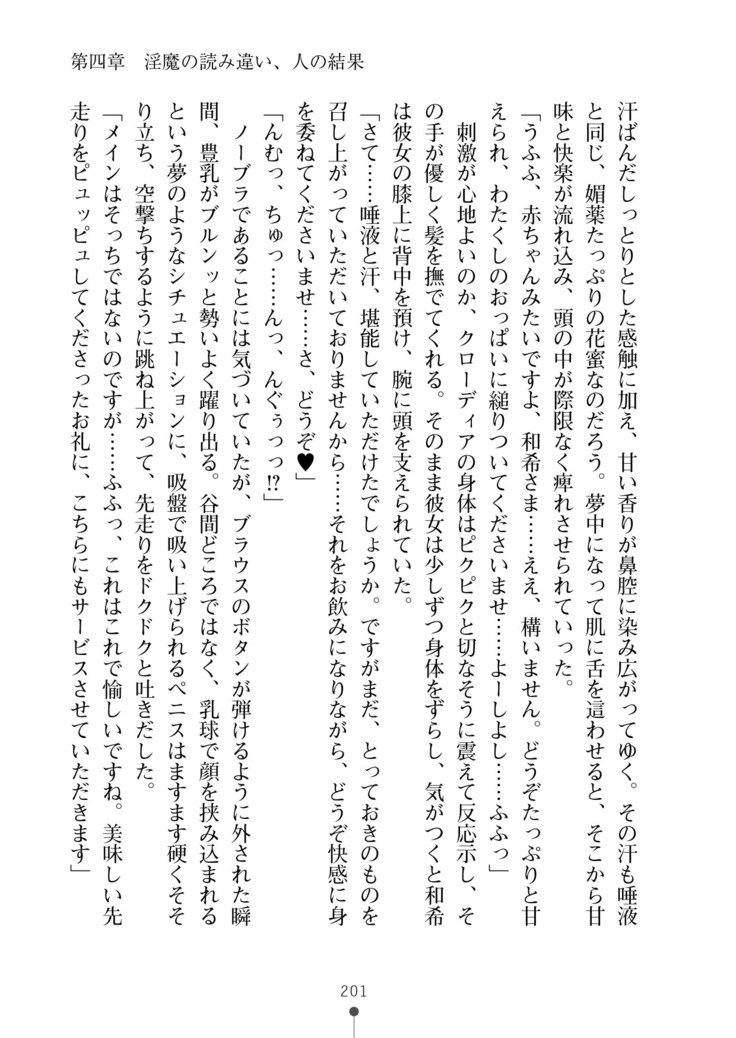 第四章　淫魔の読み違い、人の結果
汗ばんだしっとりとした感触に加え、甘い香りが鼻腔に染み広がってゆく。その汗も唾液
と同じ、媚薬たっぷりの花蜜なのだろう。夢中になって肌に舌を這わせると、そこから甘
味と快楽が流れ込み、頭の中が際限なく痺れさせられていった。
「うふふ、赤ちゃんみたいですよ、和希さま……ええ、構いません。どうぞたっぷりと甘
えられ、わたくしのおっぱいに縋りついてくださいませ……よーしよし……ふふっ」
刺激が心地よいのか、クローディアの身体はピクピクと切なそうに震えて反応示し、そ
の手が優しく髪を撫でてくれる。そのまま彼女は少しずつ身体をずらし、気がつくと和希
は彼女の膝上に背中を預け、腕に頭を支えられていた。
「さて……唾液と汗、堪能していただけたでしょうか。ですがまだ、とっておきのものを
召し上がっていただいておりませんから……それをお飲みになりながら、どうぞ快感に身
を委ねてくださいませ……さ、どうぞ♥」
「んむっ、ちゅっ……んっ、んぐぅっっ!?」
ノーブラであることには気づいていたが、ブラウスのボタンが弾けるように外された瞬
間、豊乳がブルンッと勢いよく躍り出る。谷間どころではなく、乳球で顔を挟み込まれる
という夢のようなシチュエーションに、吸盤で吸い上げられるペニスはますます硬くそそ
り立ち、空撃ちするように跳ね上がって、先走りをドクドクと吐きだした。
「メインはそっちではないのですが……ふふっ、これはこれで愉しいですね。美味しい先
走りをピュッピュしてくださったお礼に、こちらにもサービスさせていただきます」
201